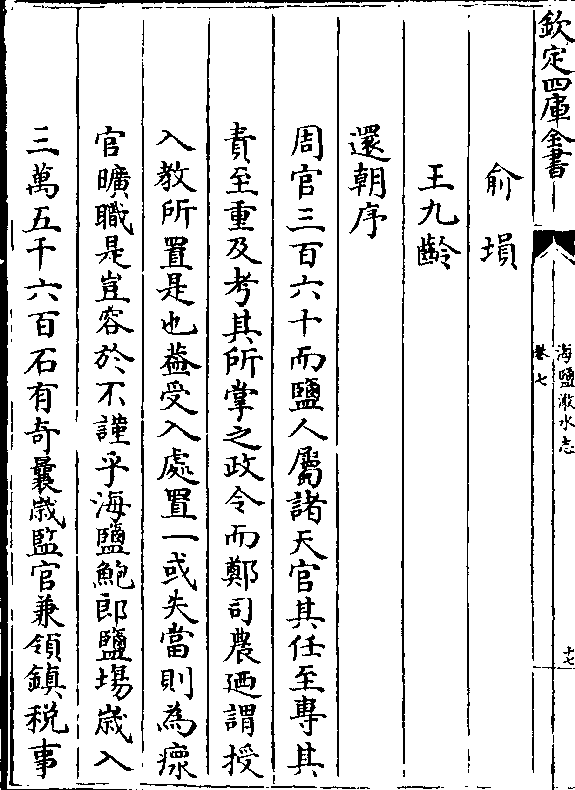 欽定四庫全書
海鹽澉水志
卷七
十七
俞塤
王九齡
還朝序
周官三百六十而鹽人屬諸天官其任至專其
責至重及考其所掌之政令而鄭司農廼謂授
入教所置是也葢受入處置一或失當則為瘝
官曠職是豈容於不謹乎海鹽鮑郎鹽塲歳入
三萬五千六百石有奇曩歳監官兼領鎮税事